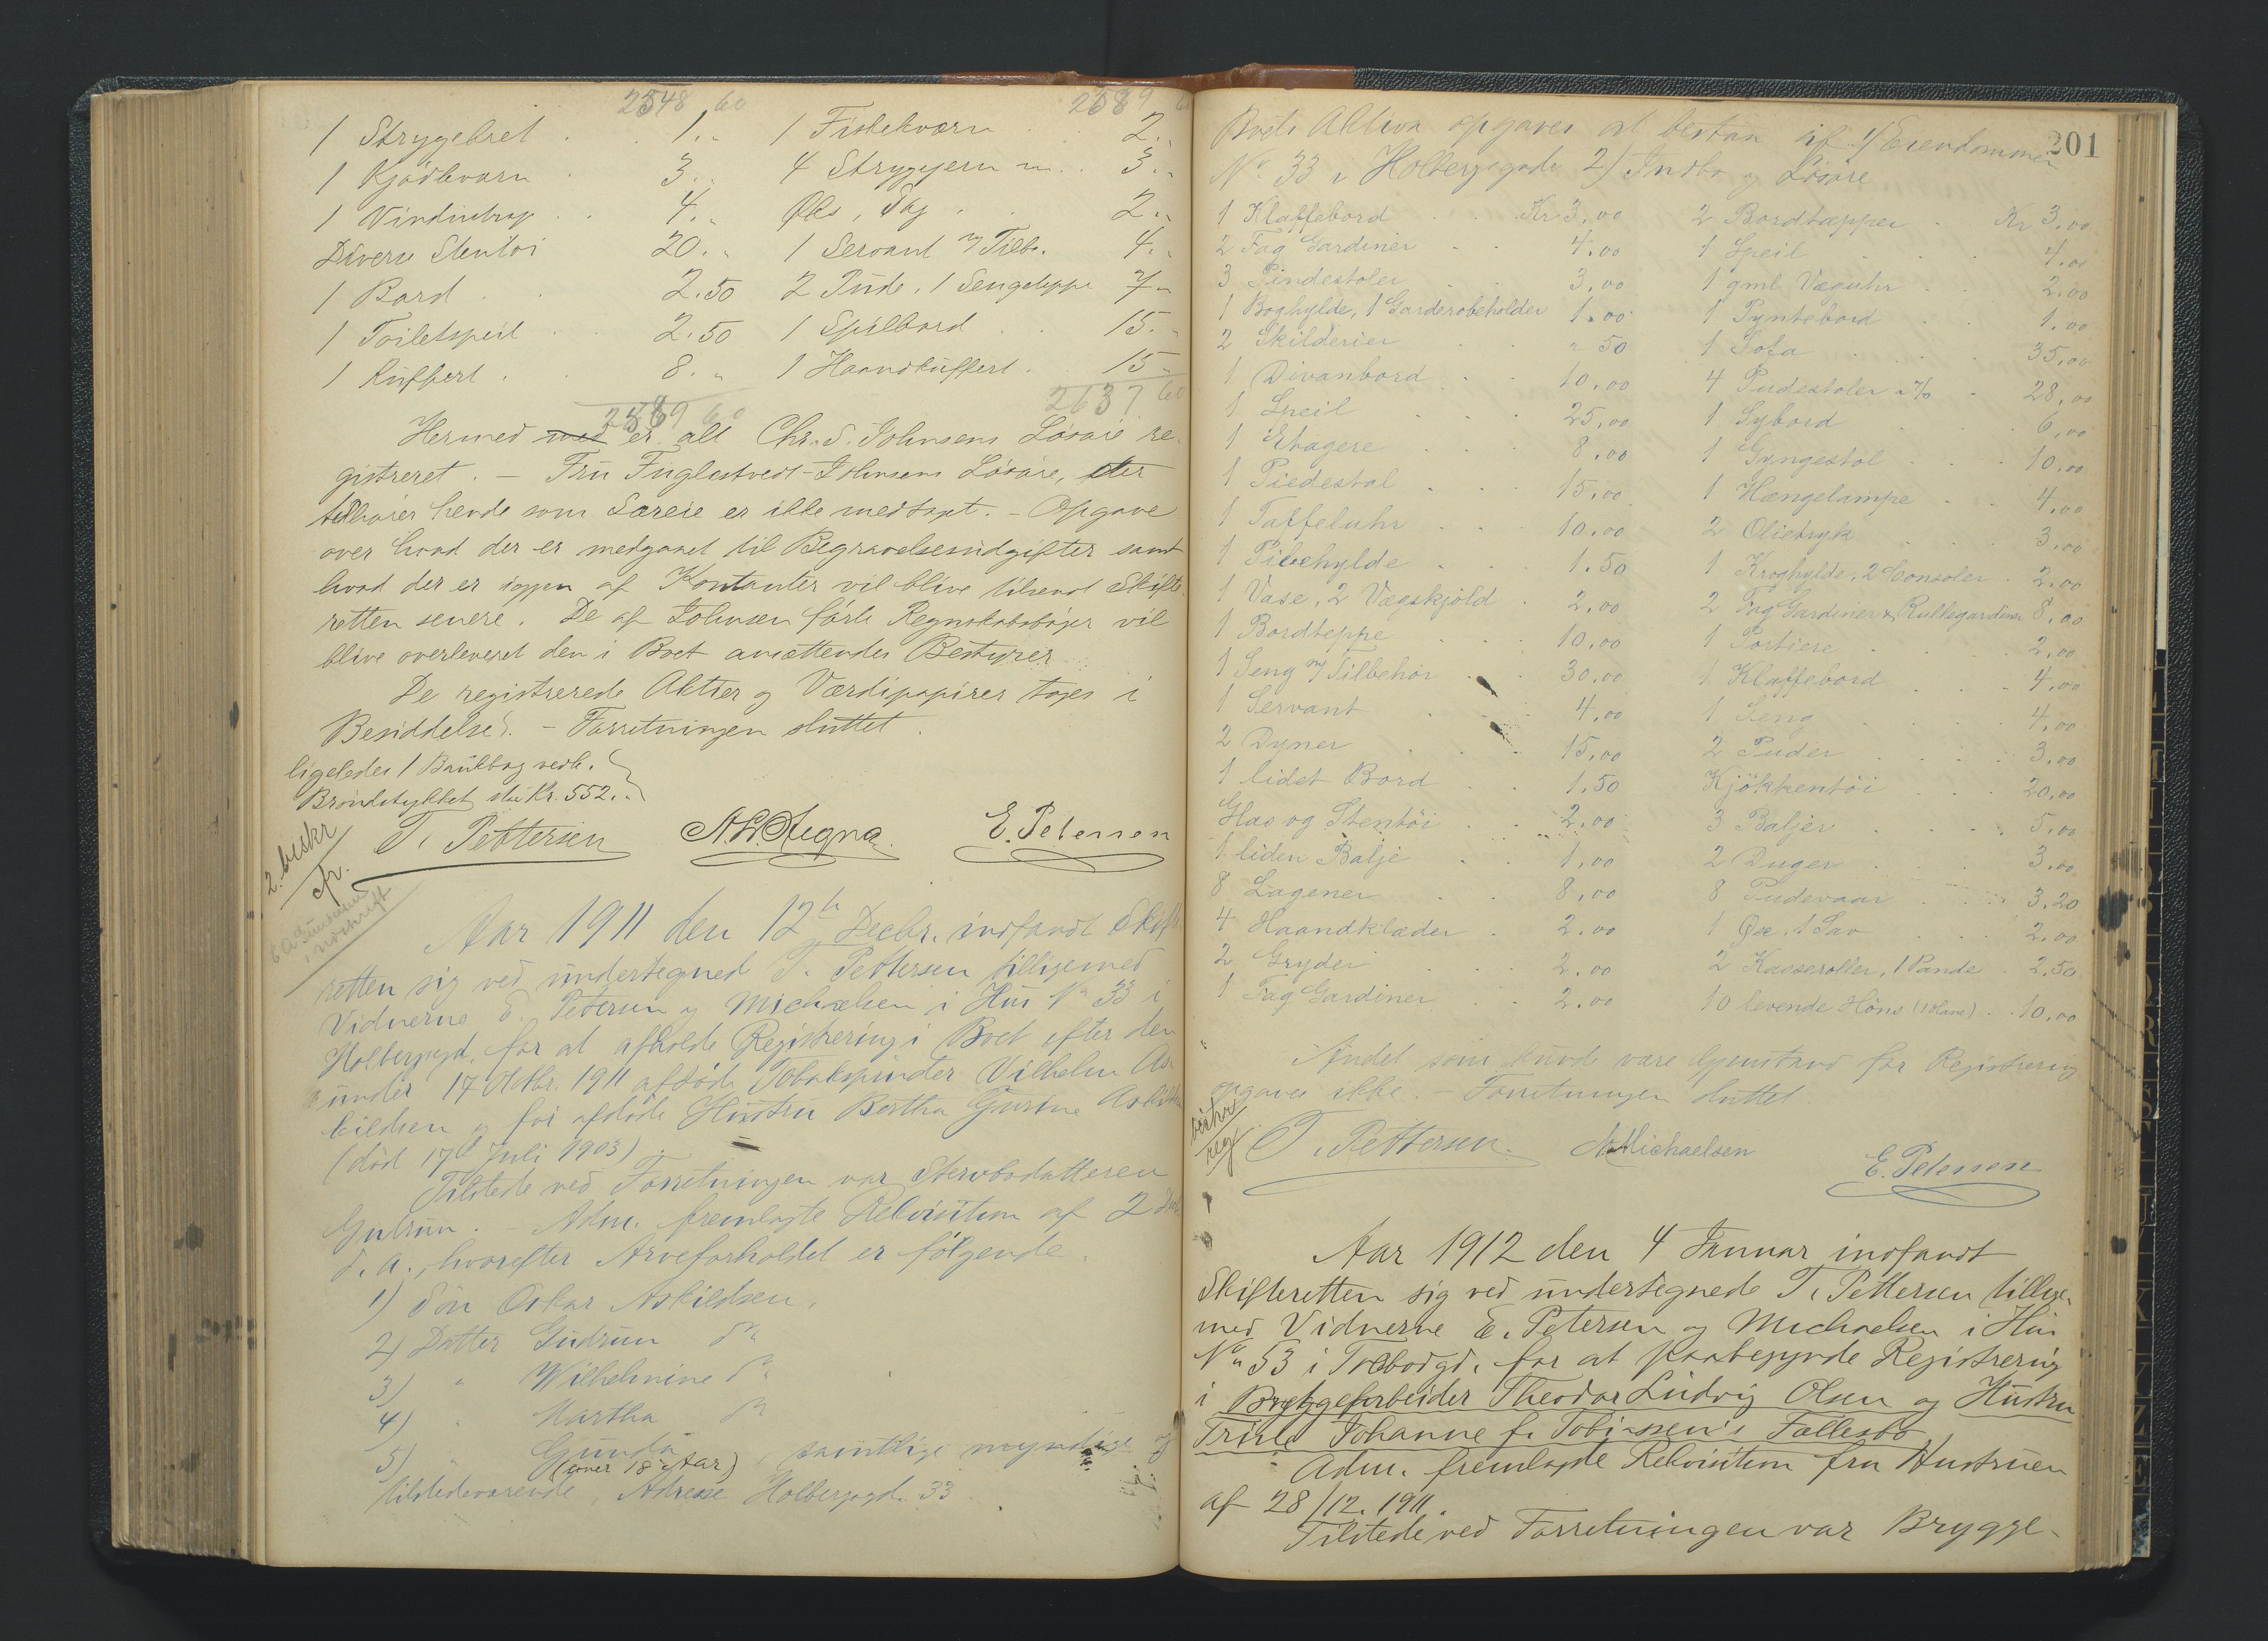 2548 60 2589 60
1 Strygebret . . 1.„ 1 Fiskekværn . 2.„
1 Kjødkvarn . 3.„ 4 Strygejern m. . 3.„
1 Vindutrap . . 4.„ Øks, Sag . . 2.„
Diverse Stentøi 20.„ 1 Servant m/ Tilb. 4.„
1 Bord . . 2.50 2 Pude, 1 Sengeteppe 7.„
1 Toiletspeil . 2.50 1 Spilbord . . 15.„
1 Kuffert . . 8.„ 1 Haandkuffert . 15.„
2589 60 2637 60
Hermed med er alt Chr. S. Johnsens Løsøre re-
gistreret. – Fru Fuglestvedt-Johnsens Løsøre, der
tilhører hende som Særeie er ikke medtaget. – Opgave
over hvad der er medgaaet til Begravelsesudgifter samt
hvad der er igjen af Kontanter vil blive tilsendt Skifte-
retten senere. De af Johnsen førte Regnskabsbøger vil
blive overleveret den i Boet ansættendes Bestyrer
De registrerede Aktier og Værdipapirer toges i
Besiddelse. – Forretningen sluttet.
ligeledes 1 Bankbog vedk.
Brøndstykket stor Kr. 552.„
T. Pettersen E. Petersen
2. beskr
cfr.
Aar 1911 den 12te Decbr. indfandt Skifte
retten sig ved undertegnede T. Pettersen tilligemed
Vidnerne E. Petersen og Michaelsen i Hus No 33 i
Holbergsgd. for at afholde Registrering i Boet efter den
under 17 Oktbr. 1911 afdøde Tobakspinder Vilhelm As-
kildsen og før afdøde Hustru Bertha Gurine Askildsen
(død 17de Juli 1903).
Tilstede ved Forretningen var Stervbodatteren
Gudrun. – Adm. fremlagte Rekvisition af 2 Dec
d. a., hvorefter Arveforholdet er følgende.
1) Søn Oskar Askildsen.
2) Datter Gudrun do
3) „ Wilhelmine do
4) „ Martha do
5) „ Gunda, samtlige myndige og
(over 18 Aar)
tilstedeværende, Adresse Holbergsgd. 33.
201
Boets Aktiva opgaves at bestaa af 1/ Eiendommen
No 33 i Holbergsgade 2) Indbo og Løsøre
1 Klaffebord . . Kr 3,00 2 Bordtæpper . Kr 3,00
2 Fag Gardiner . . 4,00 1 Speil . . . 4,00
3 Pindestoler . . 3,00 1 gml Væguhr . . 2,00
1 Boghylde, 1 Garderobeholder 1,00 1 Pyntebord . . 1,00
2 Skilderier . . „ 50 1 Sofa . . . 35,00
1 Divanbord . . 10,00 4 Pudestoler a 7/0 . 28,00
1 Speil . . . 25,00 1 Sybord . . . 6,00
1 Etagere . . . 8,00 1 Gyngestol . . 10,00
1 Piedestal . . 15,00 1 Hængelampe . . 4,00
1 Taffeluhr . . 10,00 2 Olietryk . . . 3,00
1 Pibehylde . . 1.50 1 Kroghylde, 2 Consoler . 2,00
1 Vase, 2 Vægskjold . 2,00 2 Fag Gardiner & Rullegardiner 8,00
1 Bordteppe . . 10,00 1 Portiere . . 2,00
1 Seng m/ Tilbehør . . 30,00 1 Klaffebord . . 4,00
1 Servant . . 4,00 1 Seng . . . 4,00
2 Dyner . . 15,00 2 Puder . . . 3,00
1 lidet Bord . . 1,50 Kjøkkentøi . . . 20,00
Glas og Stentøi . . 2,00 3 Baljer . . . 5,00
1 liden Balje . . 1,00 2 Duger . . . 3,00
8 Lagener . . 8,00 8 Pudevaar . . . 3,20
4 Haandklæder . . 2.00 1 Øxe, 1 Sav . . 2,00
2 Gryder . . 2.00 2 Kasseroller, 1 Pande . 2,50
1 Fag Gardiner . . 2.00 10 levende Høns (1 Hane) . . 10,00
Andet som kunde være Gjenstand for Registrering
opgaves ikke. – Forretningen sluttet.
beskr
reg
T. Pettersen. Michaelsen
E. Petersen
Aar 1912 den 4 Januar indfandt
Skifteretten sig ved undertegnede T. Pettersen tillige-
med Vidnerne E. Petersen og Michaelsen i Hus
No 53 i Toldbodgd. for at paabegynde Registrering
i Bryggearbeider Theodor Ludvig Olsen og Hustru
Johanne f. Tobiassen's Fællesbo
Adm. fremlagde Rekvisition fra Hustruen
af 28/12. 1911.
Tilstede ved Forretningen var Brygge-